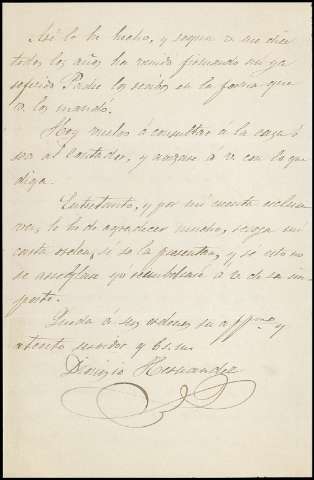 Así lo he hecho, y segun V. me dice
todos los años ha venido firmando mi ya
Padre los recibos en la forma que
V. los mandó.
Hoy vuelvo á consultar á la casa ó
sea al Contador, y avisaré á V. con lo que
diga.
Entretanto, y por mi cuenta esclusi
va, le he de agradecer mucho, recoja mi
carta orden, si se la presentan, y si esto no
se arreglara yo reembolsaré á V. de su im
porte.
Queda á sus ordenes su affmo. y
atento servidor q b. s. m.
Dionizio Hernandez